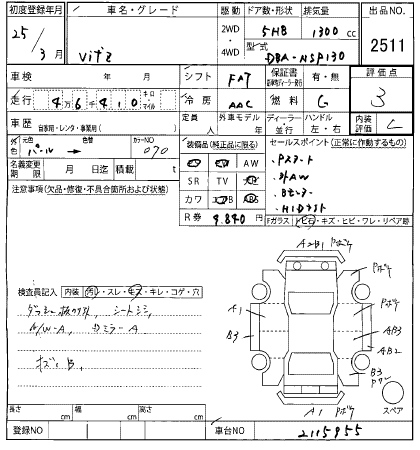 初度登録年月 車名・グレード 駆動 ドア数・形状 排気量 出品NO.
25 年 3 月 Vitz 2WD 4WD 5HB 1300 cc 2511
型式 DBA-NSP130
車検 年 月 シフト FAT 保証書 有・無 評価点
走行 4万6千410 キロ マイル 冷房 AAC 燃料 G 3
車歴 自家用・レンタ・事業用( ) 定員 人 外車モデル 年 ディーラー 並行 ハンドル 左・右 内装評価 C
外色 元色 パール → 色替 カラーNO 070
装備品(純正品に限る) セールスポイント(正常に作動するもの)
名義変更期限 月 日迄 積載 t
AW
SR TV
カワ
R券 9.840円
・Pスタート
・社外AW
・HIDライト
注意事項(欠品・修復・不具合箇所および状態)
Fガラス 飛石・キズ・ヒビ・ワレ・リペア跡
検査員記入 内装 汚れ・スレ・キズ・キレ・コゲ・穴
シートシミ
A/W-A
ミラーA
A2B1
A1
B3
AB3
AB2
B3
A1
スペア
長さ cm 幅 cm 高さ cm
登録NO 車台NO 2115955